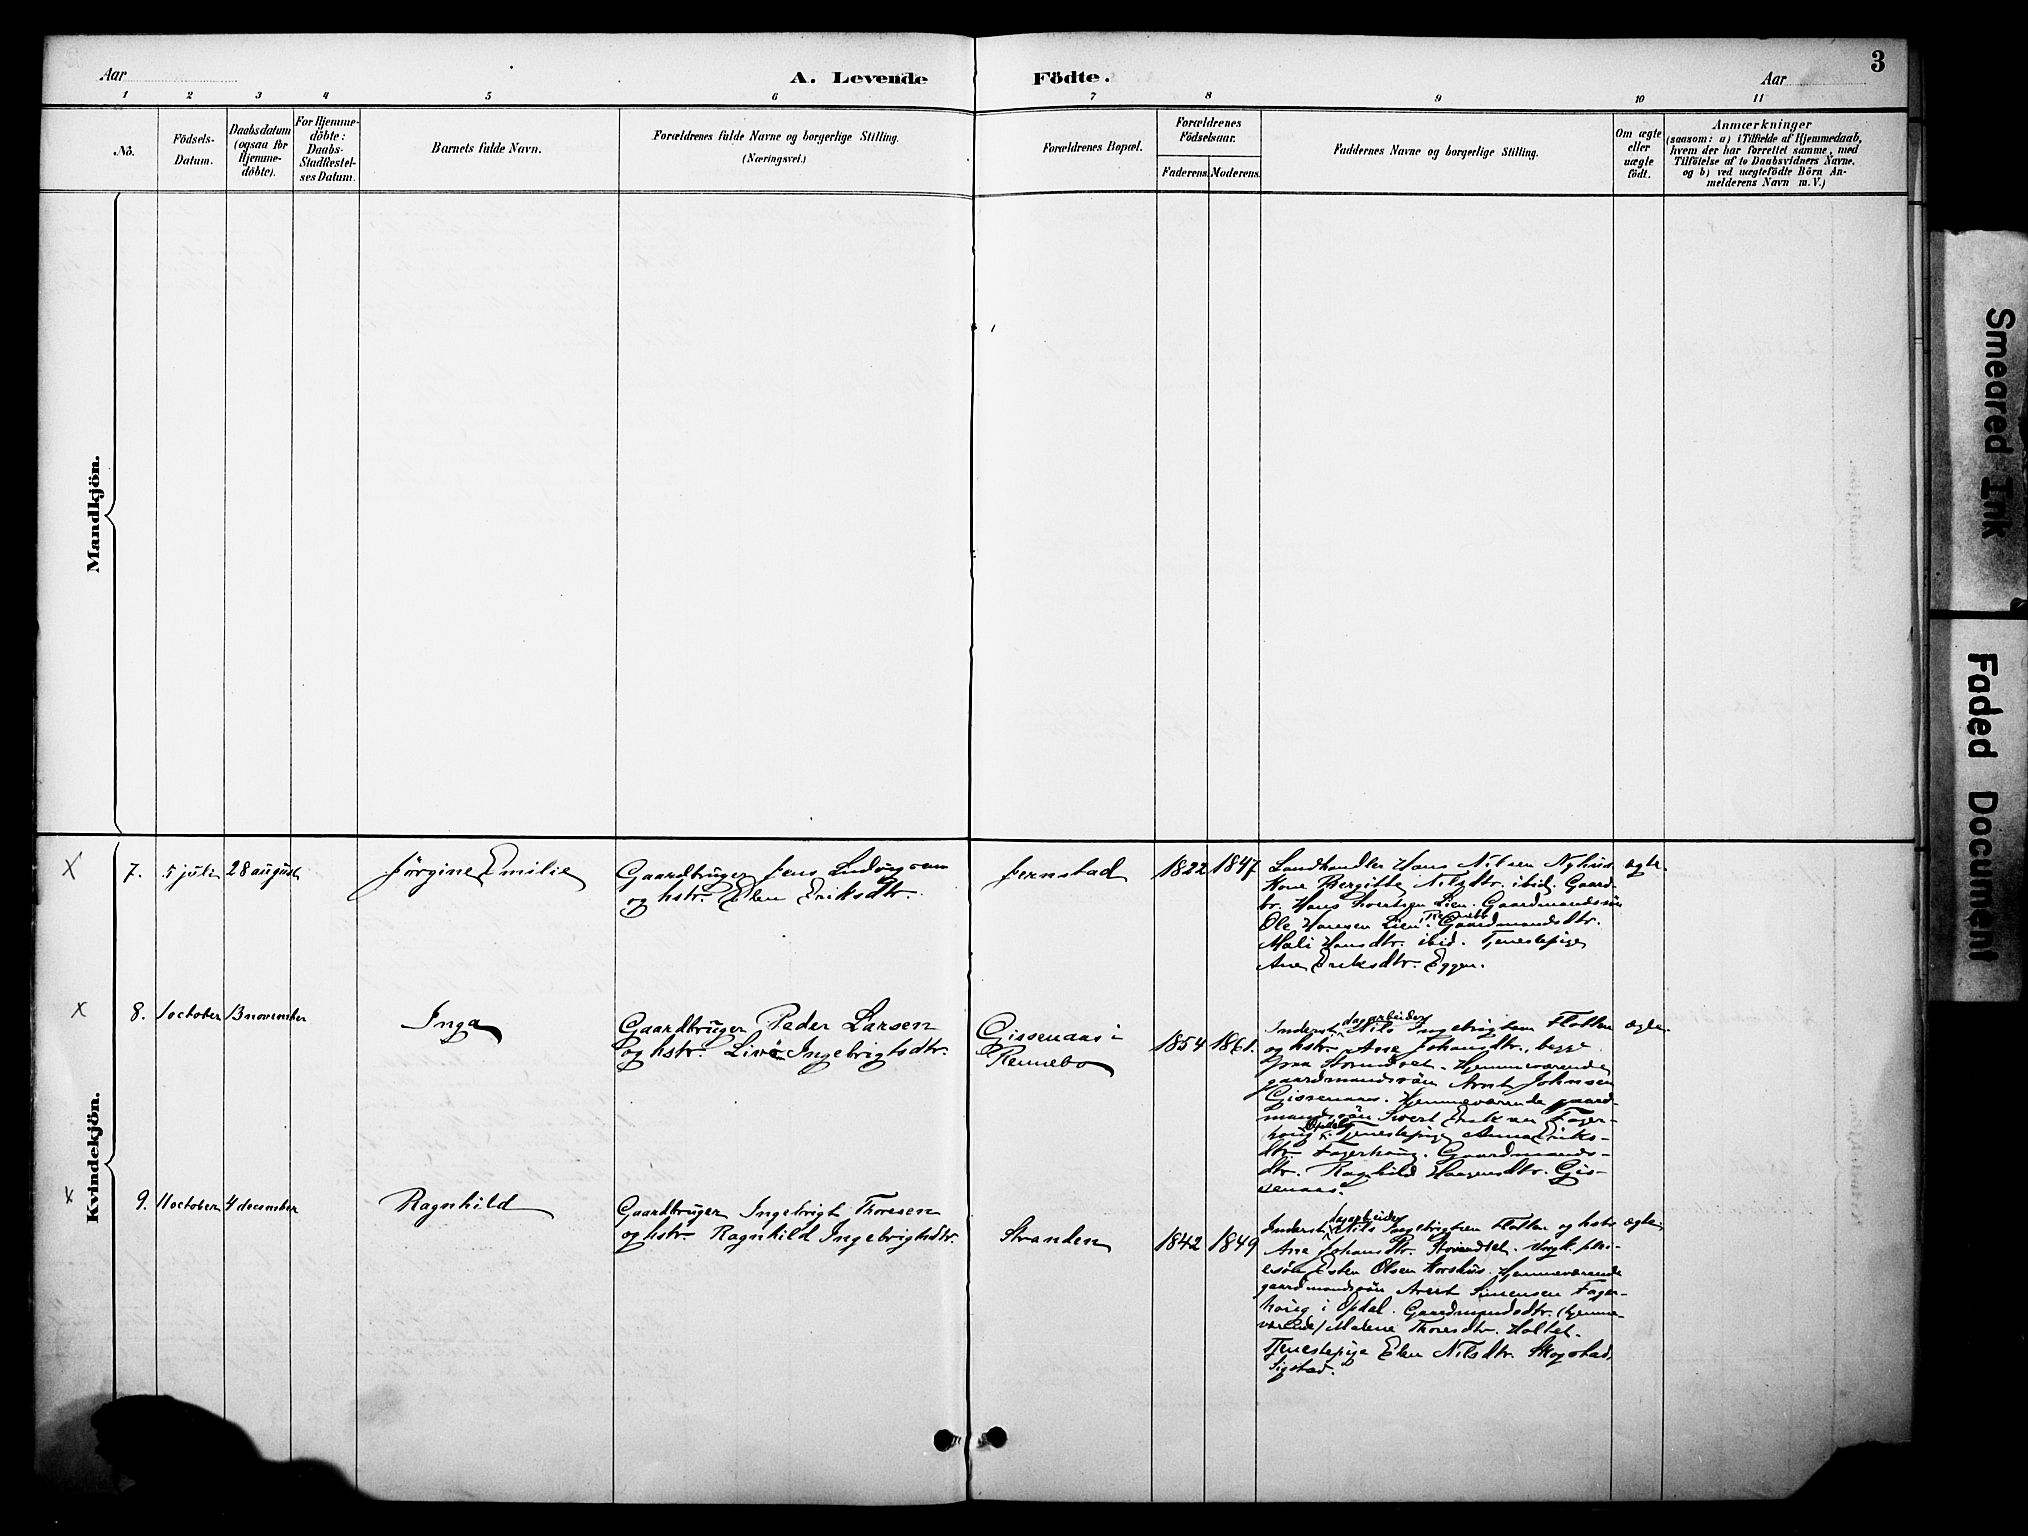 3
Aar
A. Levende Födte.
Aar
1 2 3 4 5 6 7 8 9 10 11
Nö.
Födsels-
Datum.
Daabsdatum
(ogsaa for
Hjemme-
döbte).
For Hjemme-
döbte:
Daabs-
Stadfæstel-
ses Datum.
Barnets fulde Navn.
Forældrenes fulde Navne og borgerlige Stilling.
(Næringsvei.)
Forældrenes Bopæl.
Forældrenes
Födselsaar.
Faderens. Moderens.
Faddernes Navne og borgerlige Stilling.
Om ægte
eller
uægte
födt.
Anmærkninger
(saasom: a) i Tilfælde af Hjemmedaab,
hvem der har forrettet samme, med
Tilföielse af to Daabsvidners Navne.
og b) ved uægtefödte Börn An-
melderens Navn m.V.)
Mandkjön.
Kvindekjön.
x 7. 5 juli 28 august
Jørgine Emilie
Gaardbruger Jens Ludvigsen
og hstr. Elen Eriksdtr.
Jernstad
1822 1847
Landhandler Hans Nilsen Nyhus.
Kone Bergitte Nilsdtr. ibid. Gaard-
br. Hans Lien. Gaardmandssøn
Ole Hansen Lien. Gaardmandsdtr.
Mali Hansdtr. ibid. Tjenestepige
Ane Eriksdtr. Eggen.
ægte.
x 8. 1 october 13 november
Inga
Gaardbruger Peder Larsen
og hstr. Live Ingebrigtsdtr.
Gissenaas i
Rennebo
1854 1861.
Inderst dagarbeider Nils Ingebrigtsen Flatten
og hstr. Ane Johansdtr., begge
fra . Hjemmeværende
gaardmandssøn Arnt Johnsen
Gissenaas. Hjemmeværende gaard-
mandssøn Sivert Eriksen Fager-
houg i Opdal. Tjenestepige Anna Eriks-
dtr. Fagerhoug. Gaardmands-
dtr. Ragnhild Haagensdtr. Gis-
senaas.
ægte
x 9. 11 october 4 december
Ragnhild
Gaardbruger Ingebrigt Thoresen
og hstr. Ragnhild Ingebrigtsdtr.
Stranden
1842 1849
Inderst dagarbeider Nils Ingebrigtsen Flatten og hstr.
Ane Johansdtr. . Ungk.
søn Esten Olsen Horshus. Hjemmeværende
gaardmandssøn Arent Simensen Fager-
houg i Opdal. Gaardmandsdtr. (hjemme-
værende) Malene Thoresdtr. Holtet.
Tjenestepige Elen Nilsdtr. Skogstad,
Sigstad.
ægte
Smeared Ink
Faded Document